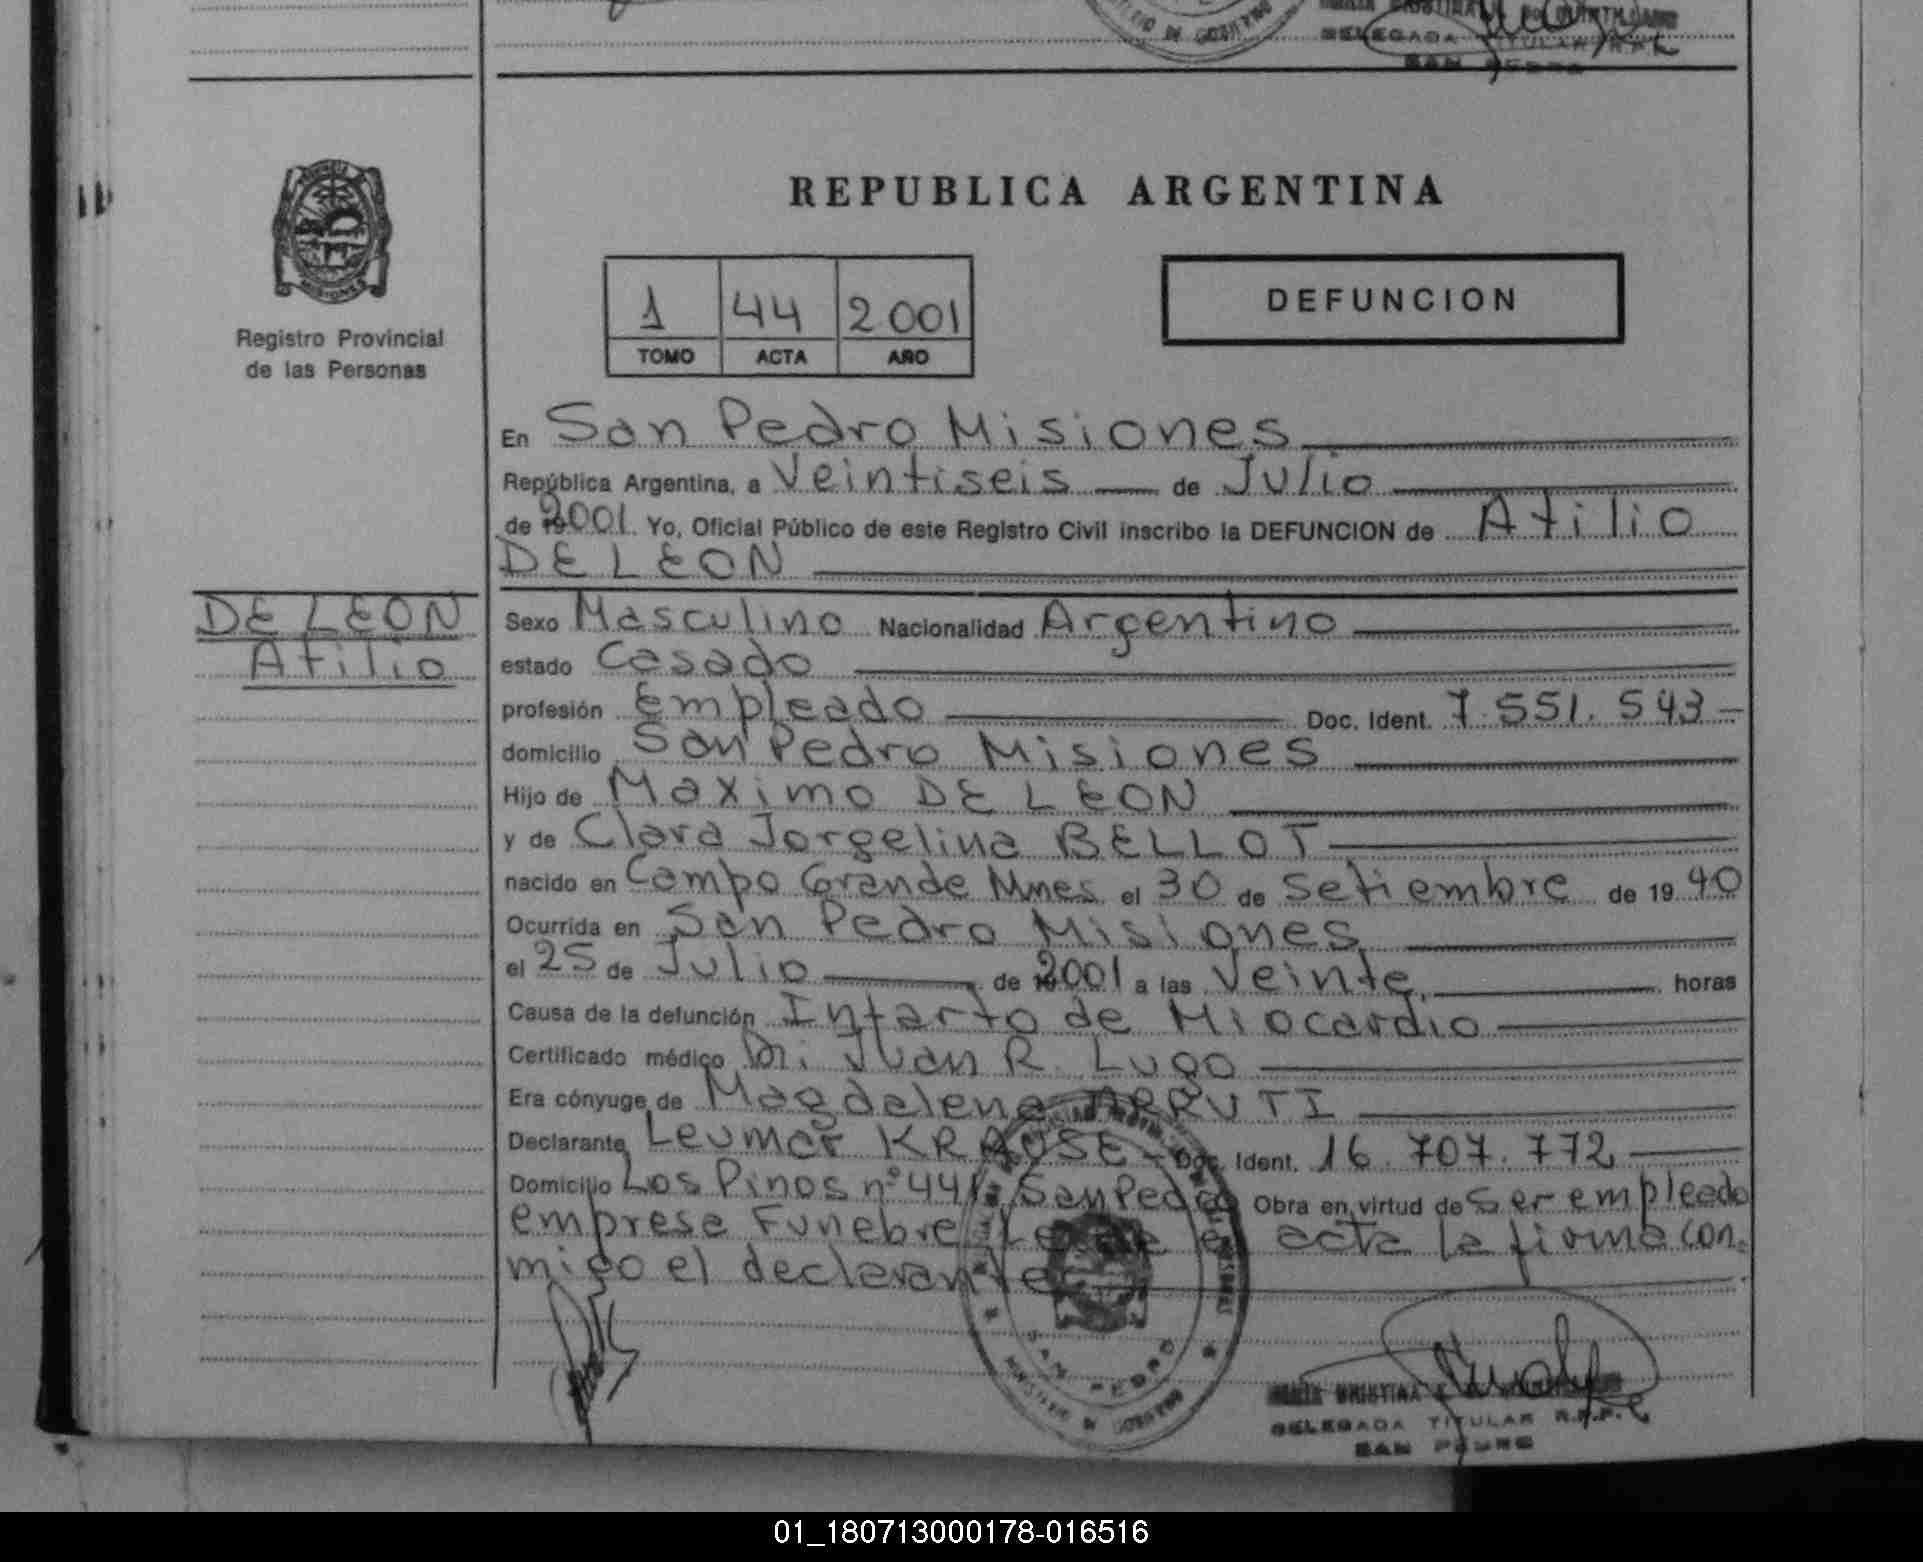 DELEGADA TITULAR R.P.P.
SAN PEDRO
PROVINCIA
MISIONES
Registro Provincial
de las Personas
REPUBLICA ARGENTINA
1 44 2001
TOMO ACTA AÑO
DEFUNCION
En San Pedro Misiones
República Argentina, a Veintiseis de Julio
de 2001 Yo, Oficial Público de este Registro Civil inscribo la DEFUNCION de Atilio
DE LEON
DE LEON
Atilio
Sexo Masculino Nacionalidad Argentino
estado Casado
profesión Empleado Doc. Ident. 7.551.543
domicilio San Pedro Misiones
Hijo de Maximo DE LEON
y de Clara Jorgelina BELLOT
nacido en Campo Grande Mnes el 30 de Setiembre de 1940
Ocurrida en San Pedro Misiones
el 25 de Julio de 2001 a las Veinte horas
Causa de la defunción Infarto de Miocardio
Certificado médico Dr. Juan R. Lugo
Era cónyuge de Magdalena ARRUTI
Declarante Leumar KRAUSE Doc. Ident. 16.707.772
Domicilio Los Pinos nº 441 San Pedro Obra en virtud de ser empleado
emprese Funebre Leida el acta la firma con
migo el declarante
SAN PEDRO
MINISTERIO DE GOBIERNO
MARIA CRISTINA
DELEGADA TITULAR R.P.P.
SAN PEDRO
01_180713000178-016516